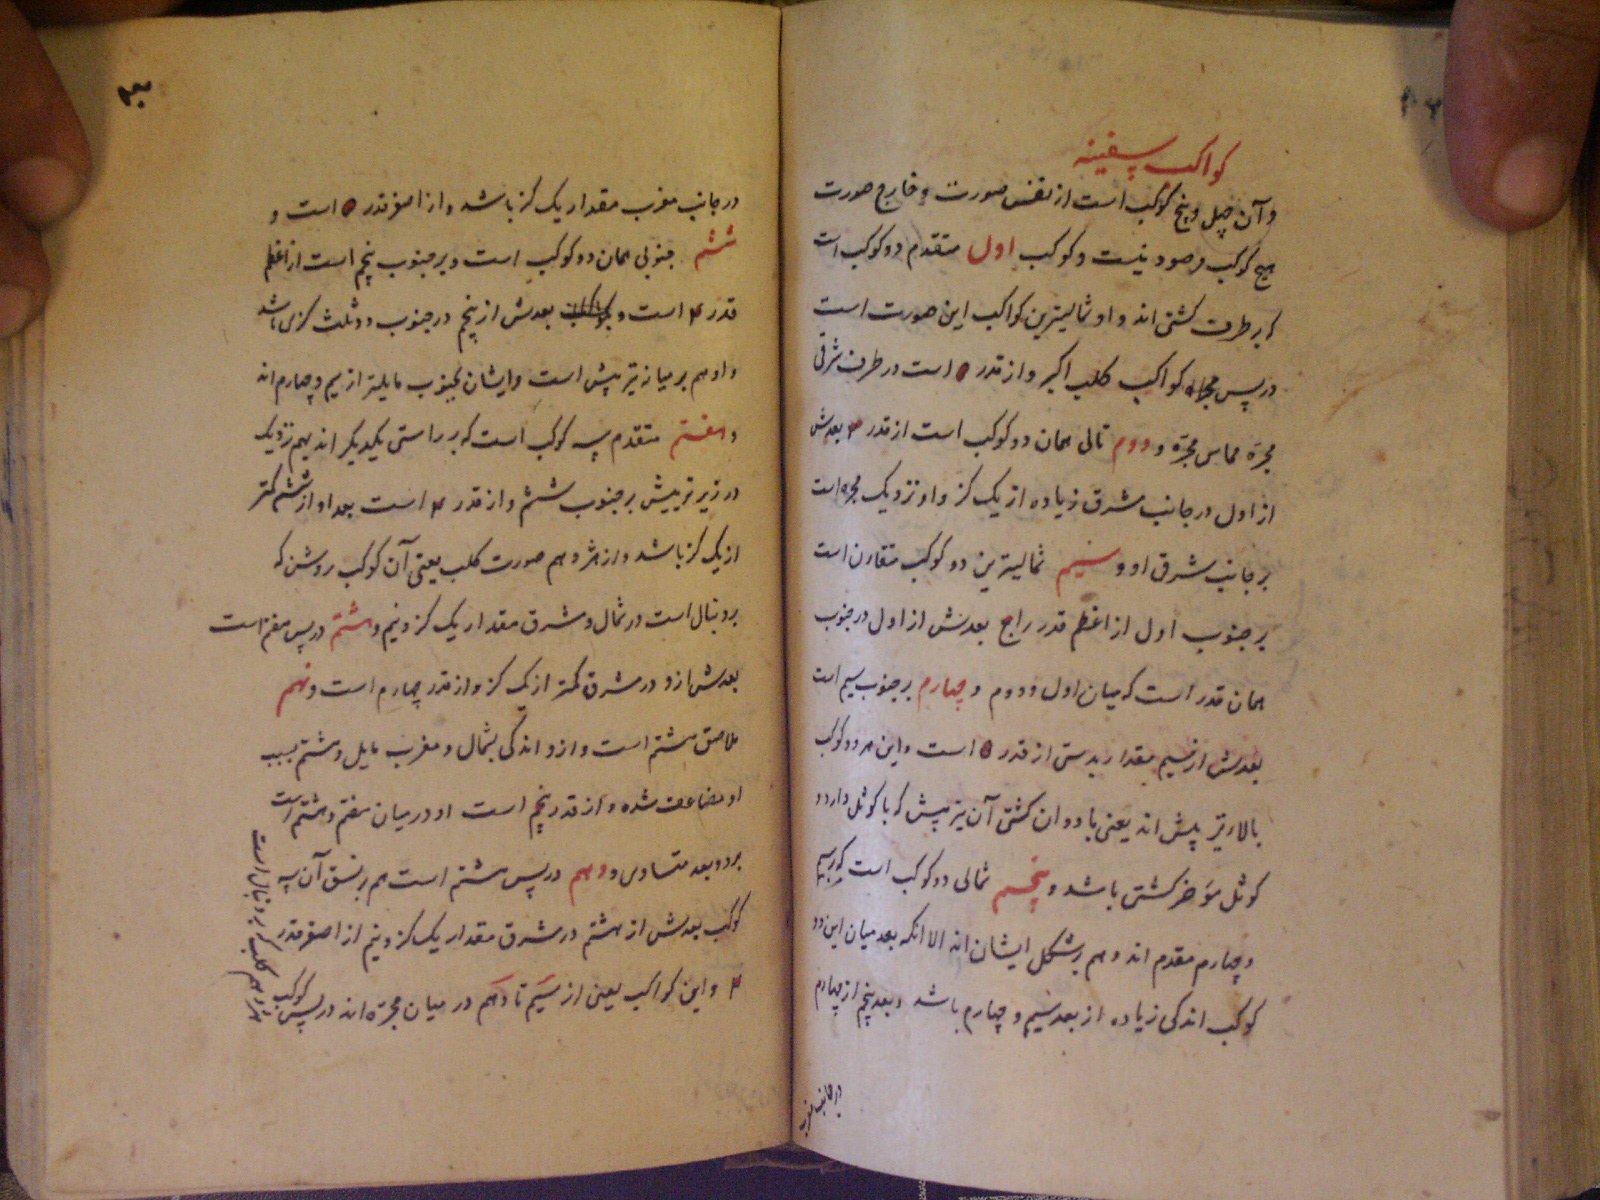 کواکب سفینه
و آن چهل و پنج کوکب است از نفس صورت و خارج صورت
هیچ کوکب مرصود نیست و کوکب اول متقدم دو کوکب است
که بر طرف کشتی اند و او شمالیترین کواکب این صورت است
در پس کواکب کلب اکبر و از قدر ۵ است در طرف شرقی
مجرّه مماس مجرّه و دوم تالی همان دو کوکب است از قدر ۴ بعدش
از اول در جانب شرق زیاده از یک گز و او نزدیک مجره است
بر جانب شرق او و سیم شمالیترین دو کوکب متقارن است
بر جنوب اول از اعظم قدر رابع بعدش از اول در جنوب
همان قدر است که میان اول و دوم و چهارم بر جنوب سیم است
بعدش از سیم مقدار بدستی از قدر ۵ است و این هر دو کوکب
بالار تیر پیش اند یعنی بادوان کشتی آن تیر پیش که با کوثل دارد و
کوثل مؤخر کشتی باشد و پنجم شمالی دو کوکب است که بر سیم
و چهارم مقدم اند و هم بر شکل ایشان اند الا آنکه بعد میان این دو
کوکب اندکی زیاده از بعد سیم و چهارم باشد و بعد پنجم از چهارم
در جانب مغرب
در جانب مغرب مقدار یک گز باشد و از اصغر قدر ۵ است و
ششم جنوبی همان دو کوکب است و بر جنوب پنجم است از اعظم
قدر ۴ است و بعدش از پنجم در جنوب دو ثلث گزی باشد
و او هم بر میان تیر پیش است و ایشان بجنوب مایلتر از سیم و چهارم اند
و هفتم متقدم سه کوکب است که بر راستی یکدیگر اند بهم نزدیک
در زیر تیر پیش بر جنوب ششم و از قدر ۴ است بعد او از ششم کمتر
از یک گز باشد و از هژدهم صورت کلب یعنی آن کوکب روشن که
بر دنبال است در شمال و شرق مقدار یک گز و نیم و هشتم در پس هفتم است
بعدش از و در مشرق کمتر از یک گز و از قدر چهارم است و نهم
ملاصق هشتم است و ازو اندکی بشمال و مغرب مایل و هشتم بسبب
او مضاعف شده و از قدر پنجم است او در میان هفتم و هشتم است
بر دو بعد متساوی و دهم در پس هشتم است هم بر نسق آن سه
کوکب بعدش از هشتم در شرق مقدار یک گز و نیم از اصغر قدر
۴ و این کواکب یعنی از سیم تا دهم در میان مجرّه اند در پس کوکب
هژدهم کلب که بر دنبال است